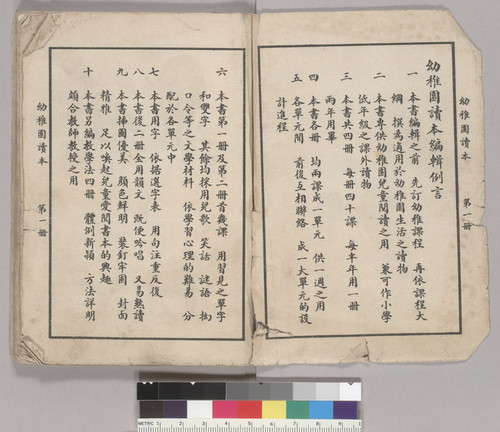 幼稚園讀本 第一冊
幼稚園讀本編輯例言
一 本書編輯之前 先訂幼稚課程 再依課程大
綱 撰為適用於幼稚園生活之讀物
二 本書專供幼稚園兒童閱讀之用 兼可作小學
低年級之課外讀物
三 本書共四冊 每冊四十課 每半年用一冊
兩年用畢
四 本書各冊 均兩課成一單元 供一週之用
五 各單元間 前後互相聯絡 成一大單元的設
計進程
六 本書第一冊及第二冊首幾課 用習見之單字
和雙字 其餘均採用兒歌 笑話 謎語 拗
口令等之文學材料 依學習心理的難易 分
配於各單元中
七 本書用字 依據選字表 用句注重反復
八 本書後二冊全用韻文 既便吟唱 又易熟讀
九 本書插圖優美 顏色鮮明 裝釘牢固 封面
精雅 足以喚起兒童愛閱書本的興趣
十 本書另編教學法四冊 體例新穎 方法詳明
頗合教師教授之用
幼稚園讀本 第一冊
METRIC 1 2 3 4 5 6 7 8 9 10